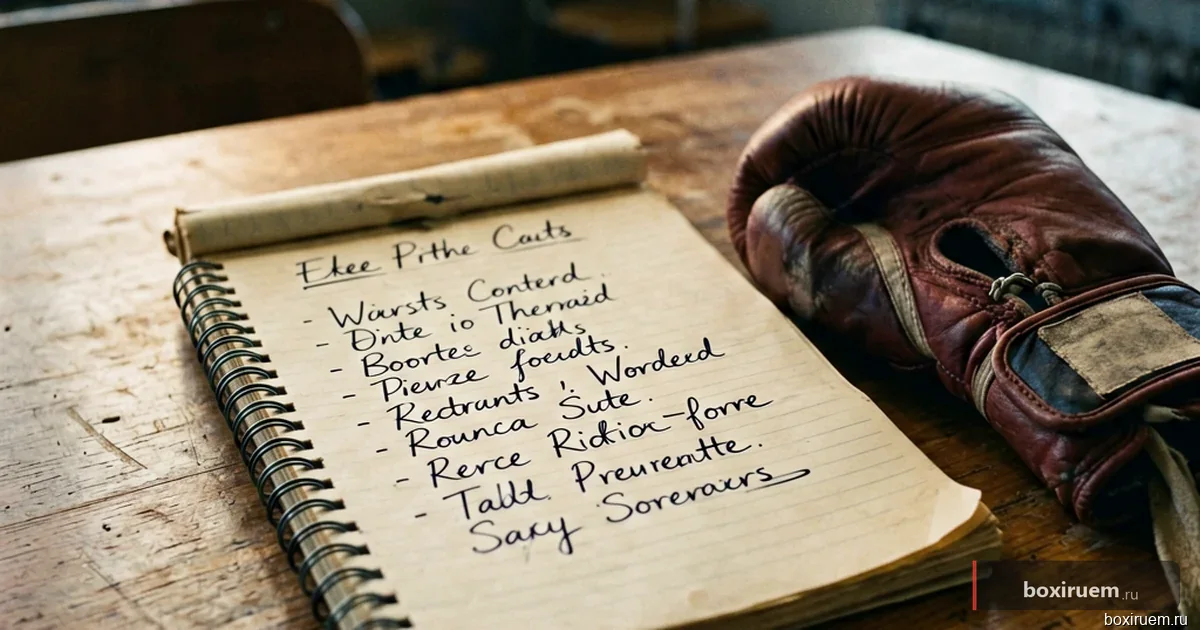 Ekee Prthe Cauts
- Wairsts Conterd.
- Dnte io Thernaid
- Boortes diakks
- Pierze foeudts.
- Redrants ; Wordeed
- Rounca Sute.
- Rerce Ridior-forre
- Tabld. Preurertte.
Saxy Sorerairs
boxiruem.ru
boxiruem.ru